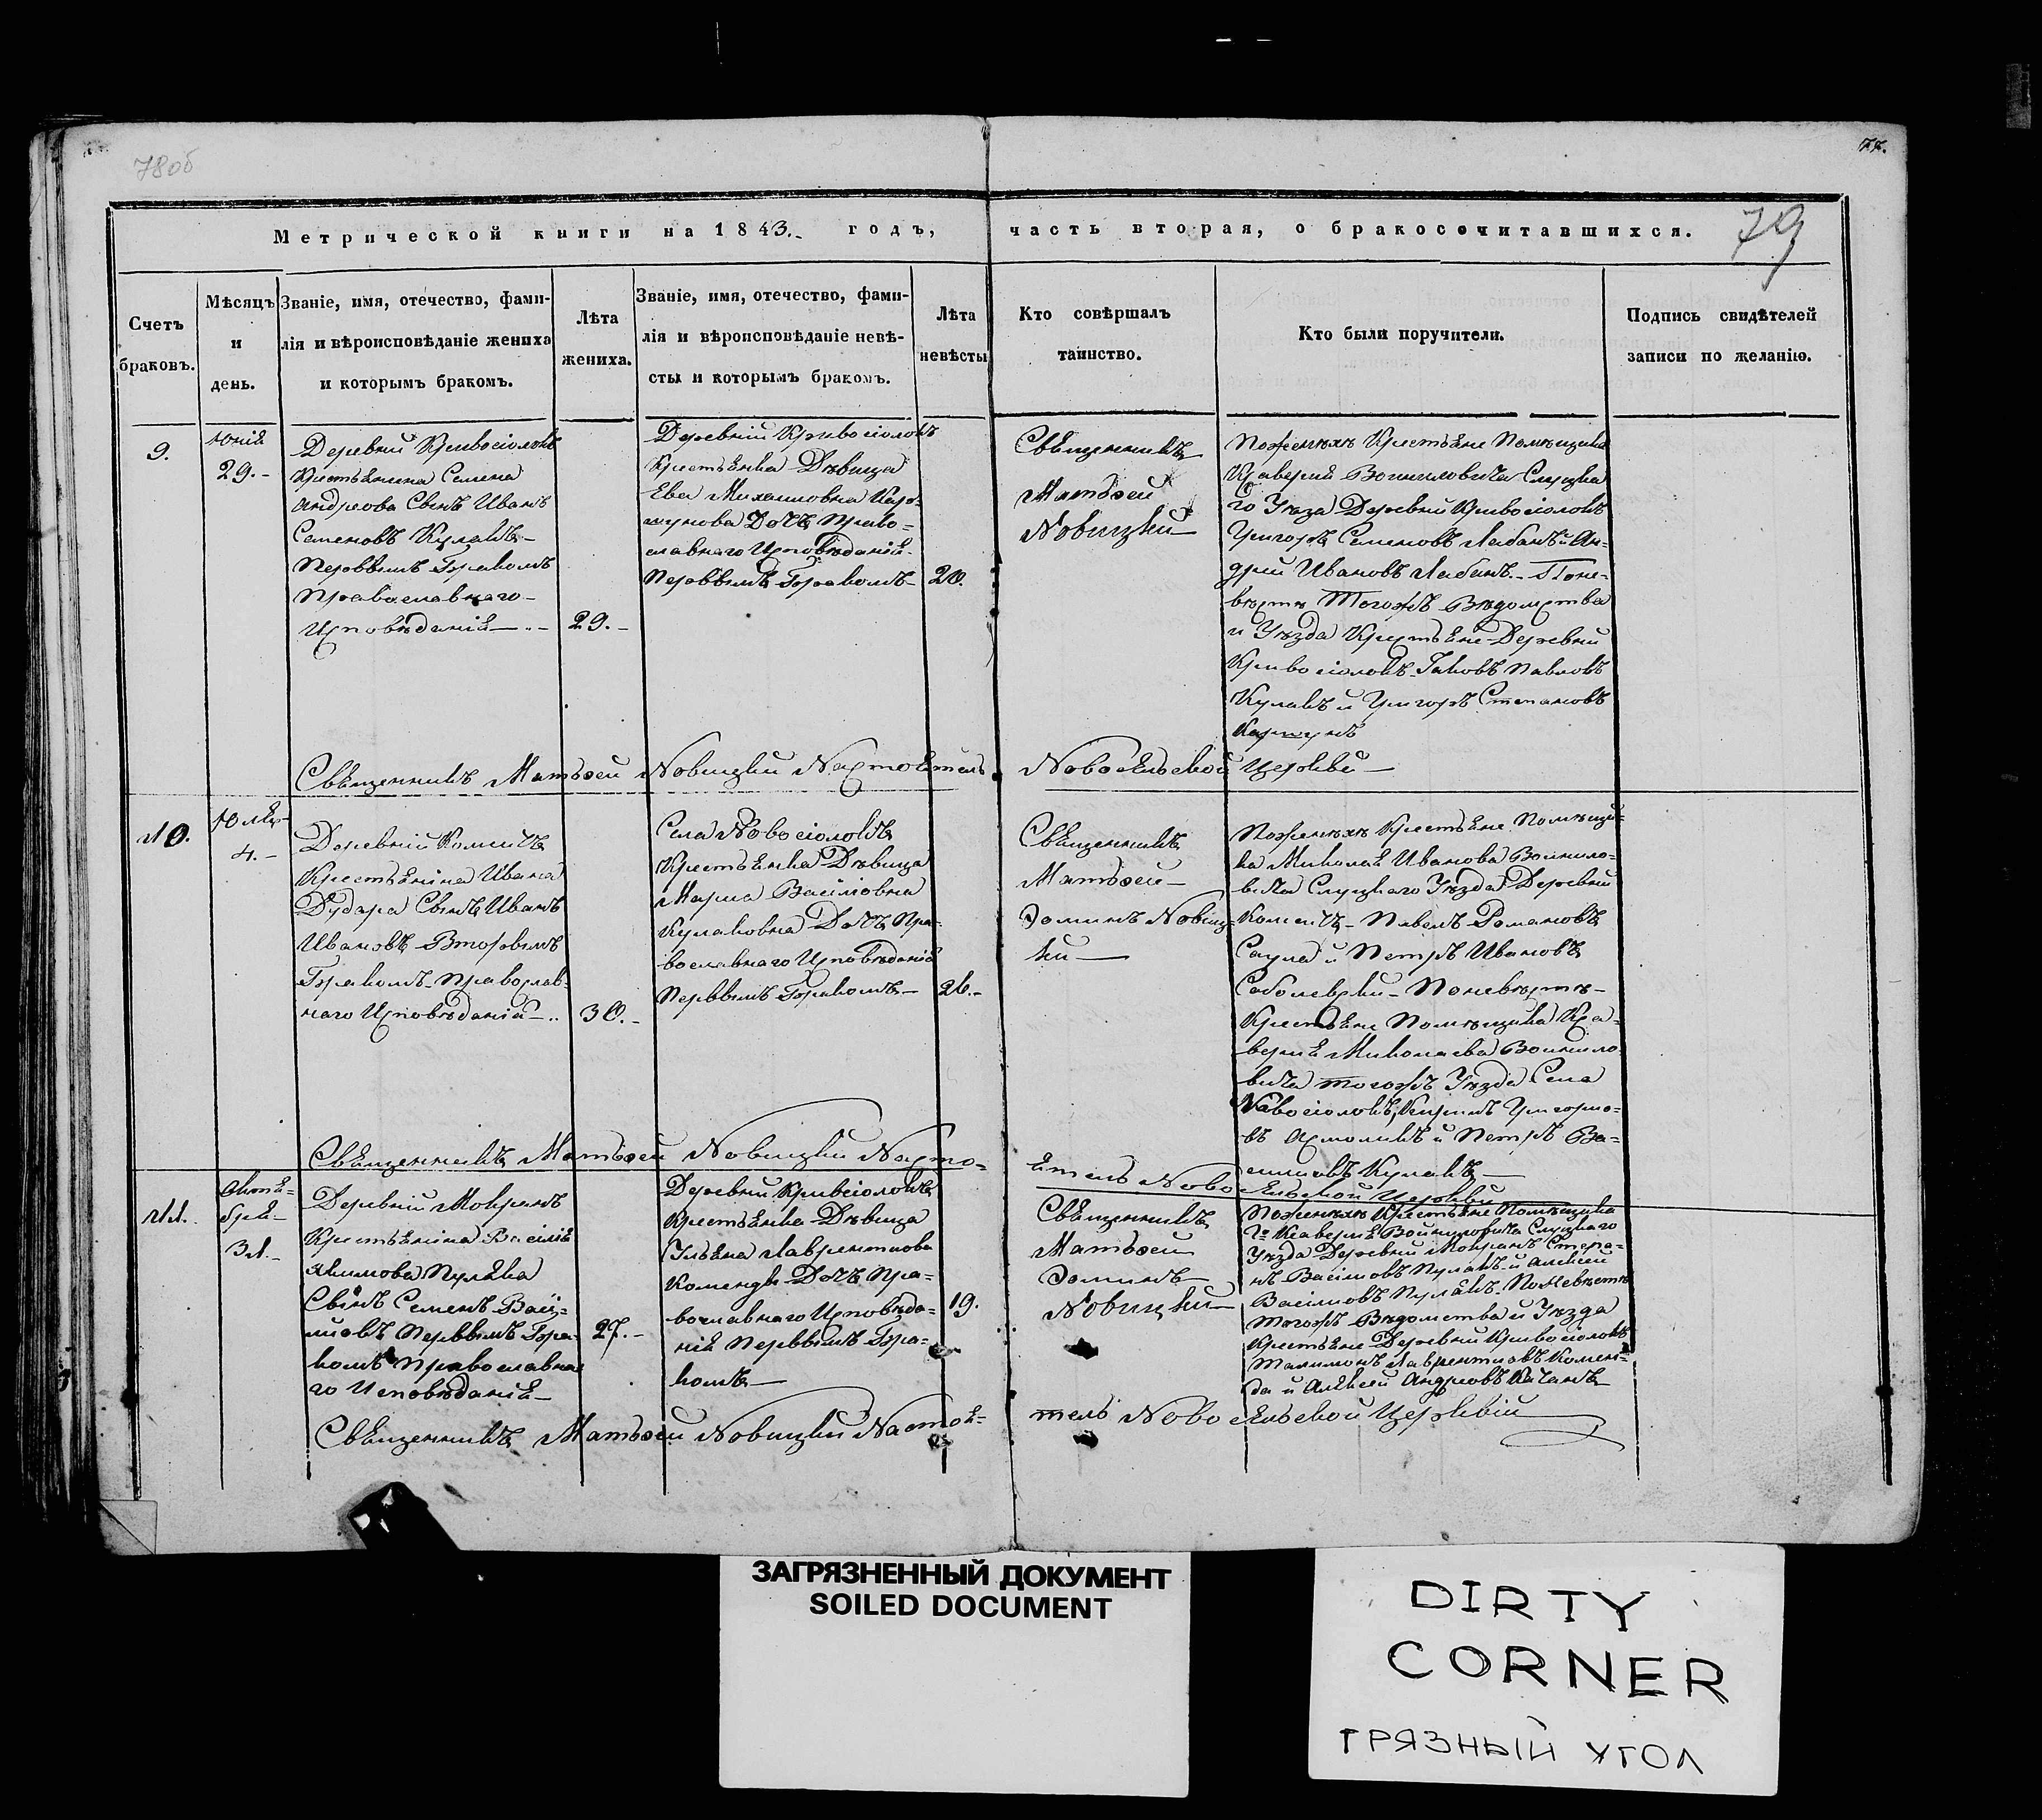 78об
77.
79
Метрической книги на 1843. годъ, часть вторая, о бракосочитавшихся.
Счетъ
браковъ.
Мѣсяцъ
и
день.
Званіе, имя, отечество, фами-
лія и вѣроисповѣданіе жениха
и которымъ бракомъ.
Лѣта
жениха.
Званіе, имя, отечество, фами-
лія и вѣроисповѣданіе невѣ-
сты и которымъ бракомъ.
Лѣта
невѣсты
Кто совѣршалъ
таинство.
Кто были поручители.
Подпись свидѣтелей
записи по желанію.
9.
Юнія
29.-
Деревни Кривосіолокъ
Крестьянина Семена
Андреова Сынъ Иванъ
Семеновъ Кулакъ-
Первымъ Бракомъ
Православнаго-
Исповѣданія-
29.-
Деревній Кривосіолокъ
Крестьянка Дѣвица
Ева Михаиловна Кар-
шунова Дочъ Право-
славнаго Исповѣданія-
Первымъ Бракомъ-
20.
Священникъ
Матѳей
Новицкій
Поженихѣ Крестьяне Помѣщика
Ксаверія Войниловича Слуцка-
го Уѣзда Деревни Кривосіолокъ
Григоръ Семеновъ Лабанъ и Ан-
дрей Ивановъ Лабанъ.- Поне-
вѣстѣ Тогожъ Вѣдомства
и Уѣзда Крестьяне Деревни
Кривосіолокъ Іаковъ Павловъ
Кулакъ и Григоръ Степановъ
Каршунъ
Священникъ Матѳей Новицкій Настоятель Новосельской Церкви
10.
Юля
4.-
Деревній Комсичъ
Крестьянина Ивана
Дудара Сынъ Иванъ
Ивановъ Вторымъ
Бракомъ Православ-
наго Исповѣданія-
30.-
Села Новосіолокъ
Крестьянка Дѣвица
Марта Василіовна
Кулаковна Дочъ Пра-
вославнаго Исповѣданія
Первымъ Бракомъ-
26.-
Священникъ
Матѳей-
Новиц-
кій
Поженихѣ Крестьяне Помѣщи-
ка Миколая Иванова Войнило-
вича Слуцкаго Уѣзда Деревни
Павелъ Романовъ
и Петръ Ивановъ
Соболевски- Поневѣстѣ-
Крестьяне Помѣщика Кса-
верія Миколаева Войнило-
вича тогожъ Уѣзда Села
Новосіолокъ Григоріо-
въ и Петръ Ва-
силіовъ Кулакъ
Священникъ Матѳей Новицкій Насто-
ятель Новосельской Церкви
11.
Октя-
бря-
31.-
Деревній Мокранъ
Крестьянина Василія
Якимова Пуляка
Сынъ Семенъ Васи-
ліовъ Первымъ Бра-
комъ Православна-
го Исповѣданія-
27.-
Деревни Кривосіолокъ
Крестьянка Дѣвица
Ульяна Лаврентіова
Коменды Дочъ Пра-
вославнаго Исповѣда-
нія Первымъ Бра-
комъ
19.
Священникъ
Матѳей
Новицкій
Поженихѣ Крестьяне Помѣщика
Ксаверія Войниловича Слуцкаго
Уѣзда Деревни Мокранъ Стефа-
нъ Васіліовъ Пулякъ и Алексей
Василіовъ Пулякъ Поневѣстѣ
тогожъ Вѣдомства и Уѣзда
Крестьяне Деревни Кривосіолокъ
Лаврентіовъ Комен-
да и Алексей Андреовъ Качанъ
Священникъ Матѳей Новицкій Настоя-
тель Новосельской Церквій
ЗАГРЯЗНЕННЫЙ ДОКУМЕНТ
SOILED DOCUMENT
DIRTY
CORNER
ГРЯЗНЫЙ УГОЛ